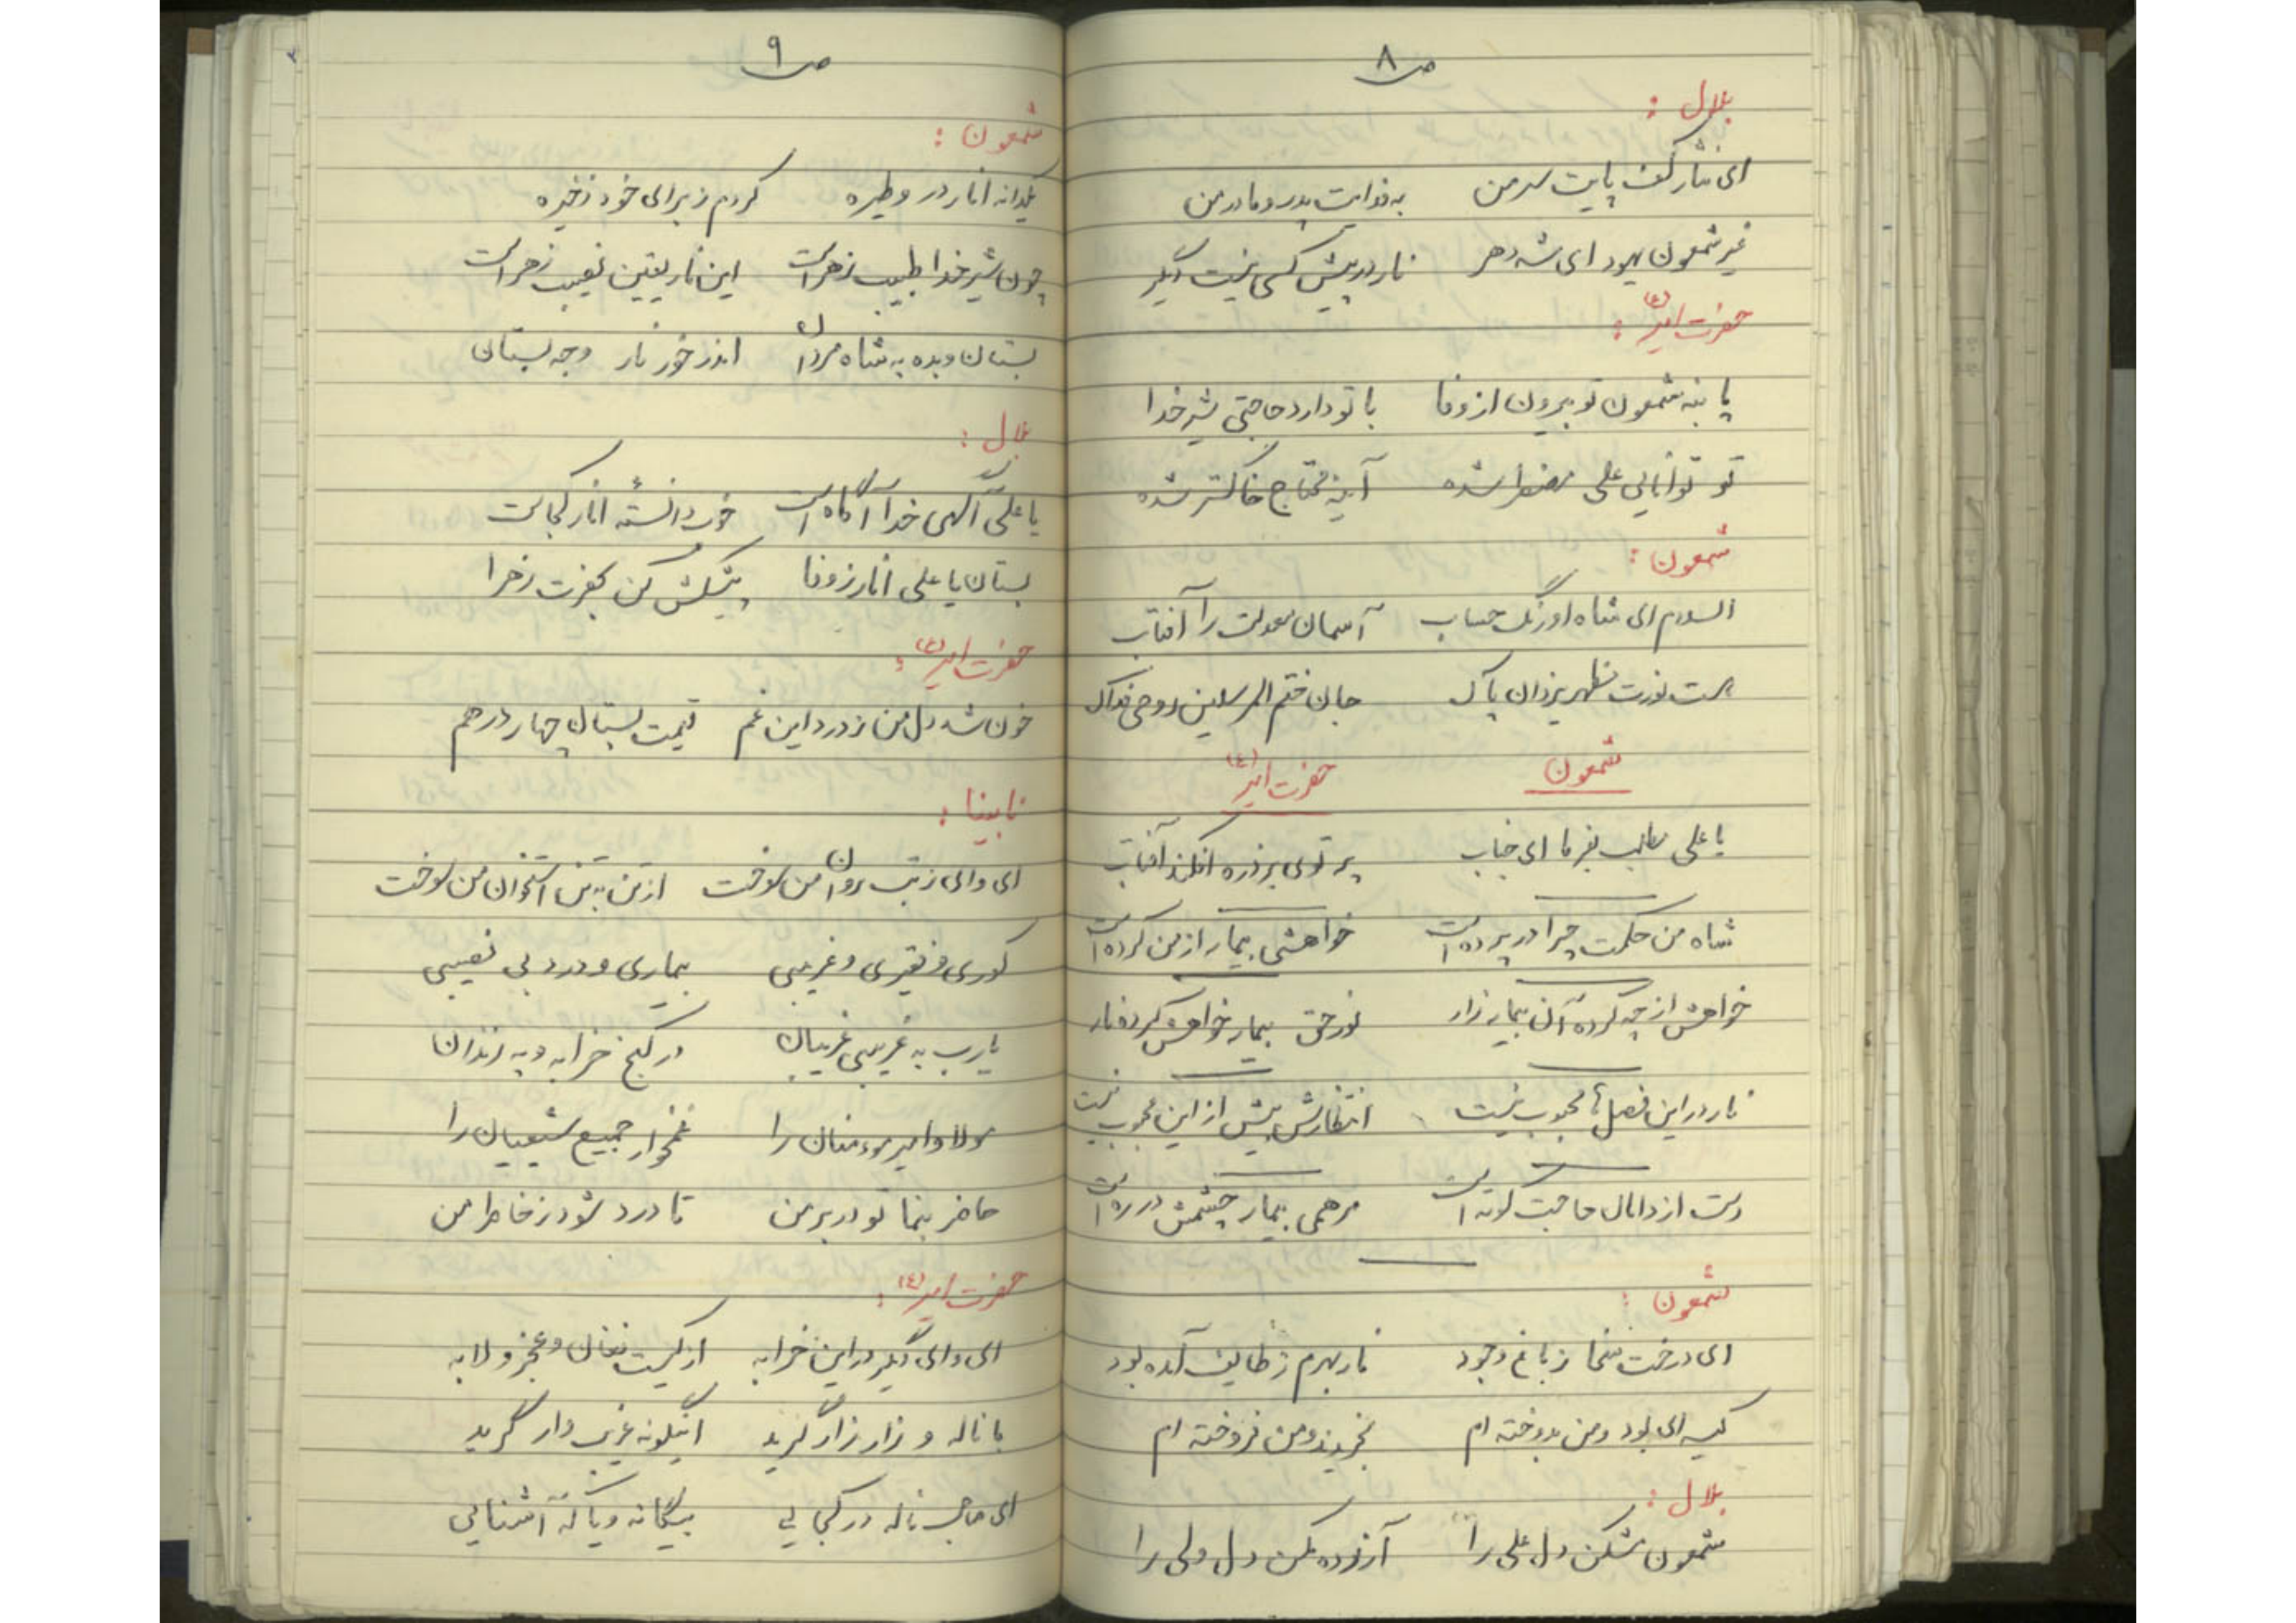 ص ۸
بلال :
ای نثار کف پایت سر من به فدایت پدر و مادر من
غیر شمعون یهود ای شه دهر نار در پیش کسی نیست دگر
حضرت امیر (ع) :
پا بنه شمعون تو بیرون از وفا با تو دارد حاجتی شیر خدا
تو توانایی علی مضطر شده آینه محتاج خاکستر شده
شمعون :
السلام ای شاه اورنگ حساب آسمان معدلت را آفتاب
هست نورت مظهر یزدان پاک جان ختم المرسلین روحی فداک
شمعون حضرت امیر (ع)
یا علی مطلب بفرما ای جناب پرتوی بر ذره افکند آفتاب
شاه من حکمت چرا در پرده است خواهشی بیمار از من کرده است
خواهش از چه کرده آن بیمار زار نور حق بیمار خواهش کرده نار
نار در این فصل ها محبوب نیست انتظارش بیش از این محبوب نیست
دست از دامان حاجت کوته است مرهمی بیمار چشمش در ره است
شمعون :
ای درخت سخا ز باغ وجود نار بهرم ز طایف آمده بود
کیسه ای بود و من بدوخته ام بخریدند و من فروخته ام
بلال :
شمعون مشکن دل علی را آزرده مکن دل ولی را
ص ۹
شمعون :
یکدانه انار در وطیره کردم ز برای خود ذخیره
چون شیر خدا طبیب زهراست این نار یقین نصیب زهراست
بستان و بده به شاه مردان اندر خور نار وجه بستان
بلال :
یا علی آگهی خدا آگاه است خود دانسته انار کجاست
بستان یا علی انار ز وفا پیشکش کن بحضرت زهرا
حضرت امیر (ع) :
خون شد دل من ز درد این غم قیمت بستان چهار درهم
نابینا :
ای وای ز تب روان من سوخت از تن به تن استخوان من سوخت
کوری و فقیری و غریبی بیماری و درد بی نصیبی
یارب به غریبی غریبان در کنج خرابه و به زندان
مولا و امیر مومنان را غمخوار جمیع شیعیان را
حاضر بنما تو در بر من تا درد شود ز خاطر من
حضرت امیر (ع) :
ای وای دگر در این خرابه از کیست فغان و عجز و لابه
با ناله و زار زار گرید اینگونه غریب وار گرید
ای صاحب ناله در کجایی بیگانه و یا که آشنایی